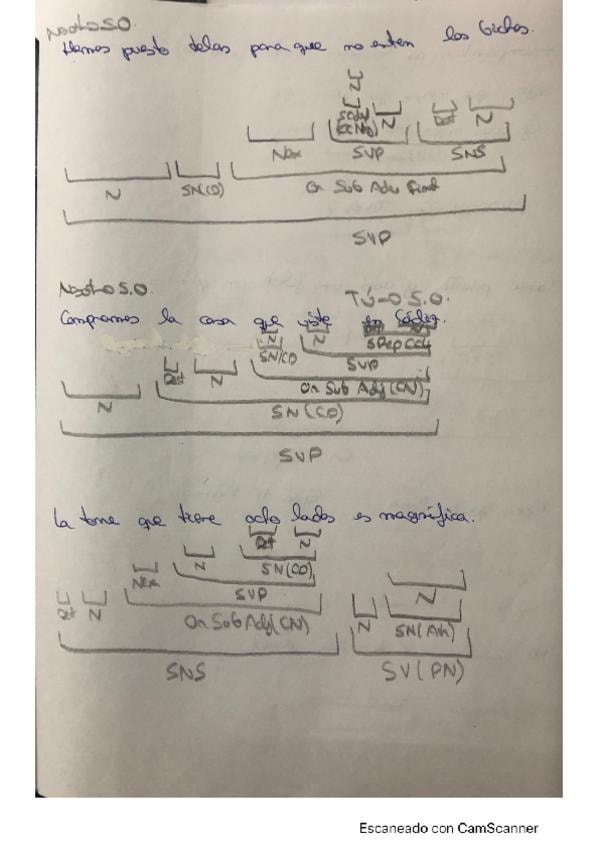 Nosotros S.O.
Hemos puesto telas para que no entren los bichos.
N
N N
Nex SVP SNS
N SN(CD) Or Sub Adv Final
SVP
Nosotros S.O. TÚ-O S.O.
Compramos la casa que viste en Cádiz.
N N
SN/CD SPrep CCL
Det N SVP
N Or Sub Adj (CN)
SN (CD)
SVP
La torre que tiene ocho lados es magnífica.
Det N
N SN(CD)
Nex SVP N
Det N Or Sub Adj (CN) N SN(Atr)
SNS SV(PN)
Escaneado con CamScanner